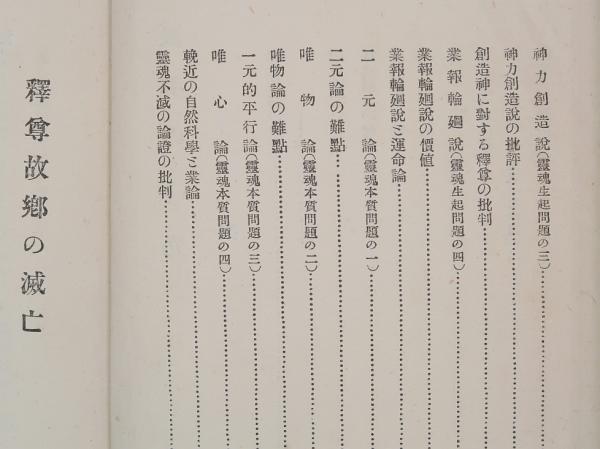 神力創造說(靈魂生起問題の三)
神力創造說の批評
創造神に對する釋尊の批判
業報輪廻說(靈魂生起問題の四)
業報輪廻說の價値
業報輪廻說と運命論
二元論(靈魂本質問題の一)
二元論の難點
唯物論(靈魂本質問題の二)
唯物論の難點
一元的平行論(靈魂本質問題の三)
唯心論(靈魂本質問題の四)
輓近の自然科學と業論
靈魂不滅の論證の批判
釋尊故鄕の滅亡